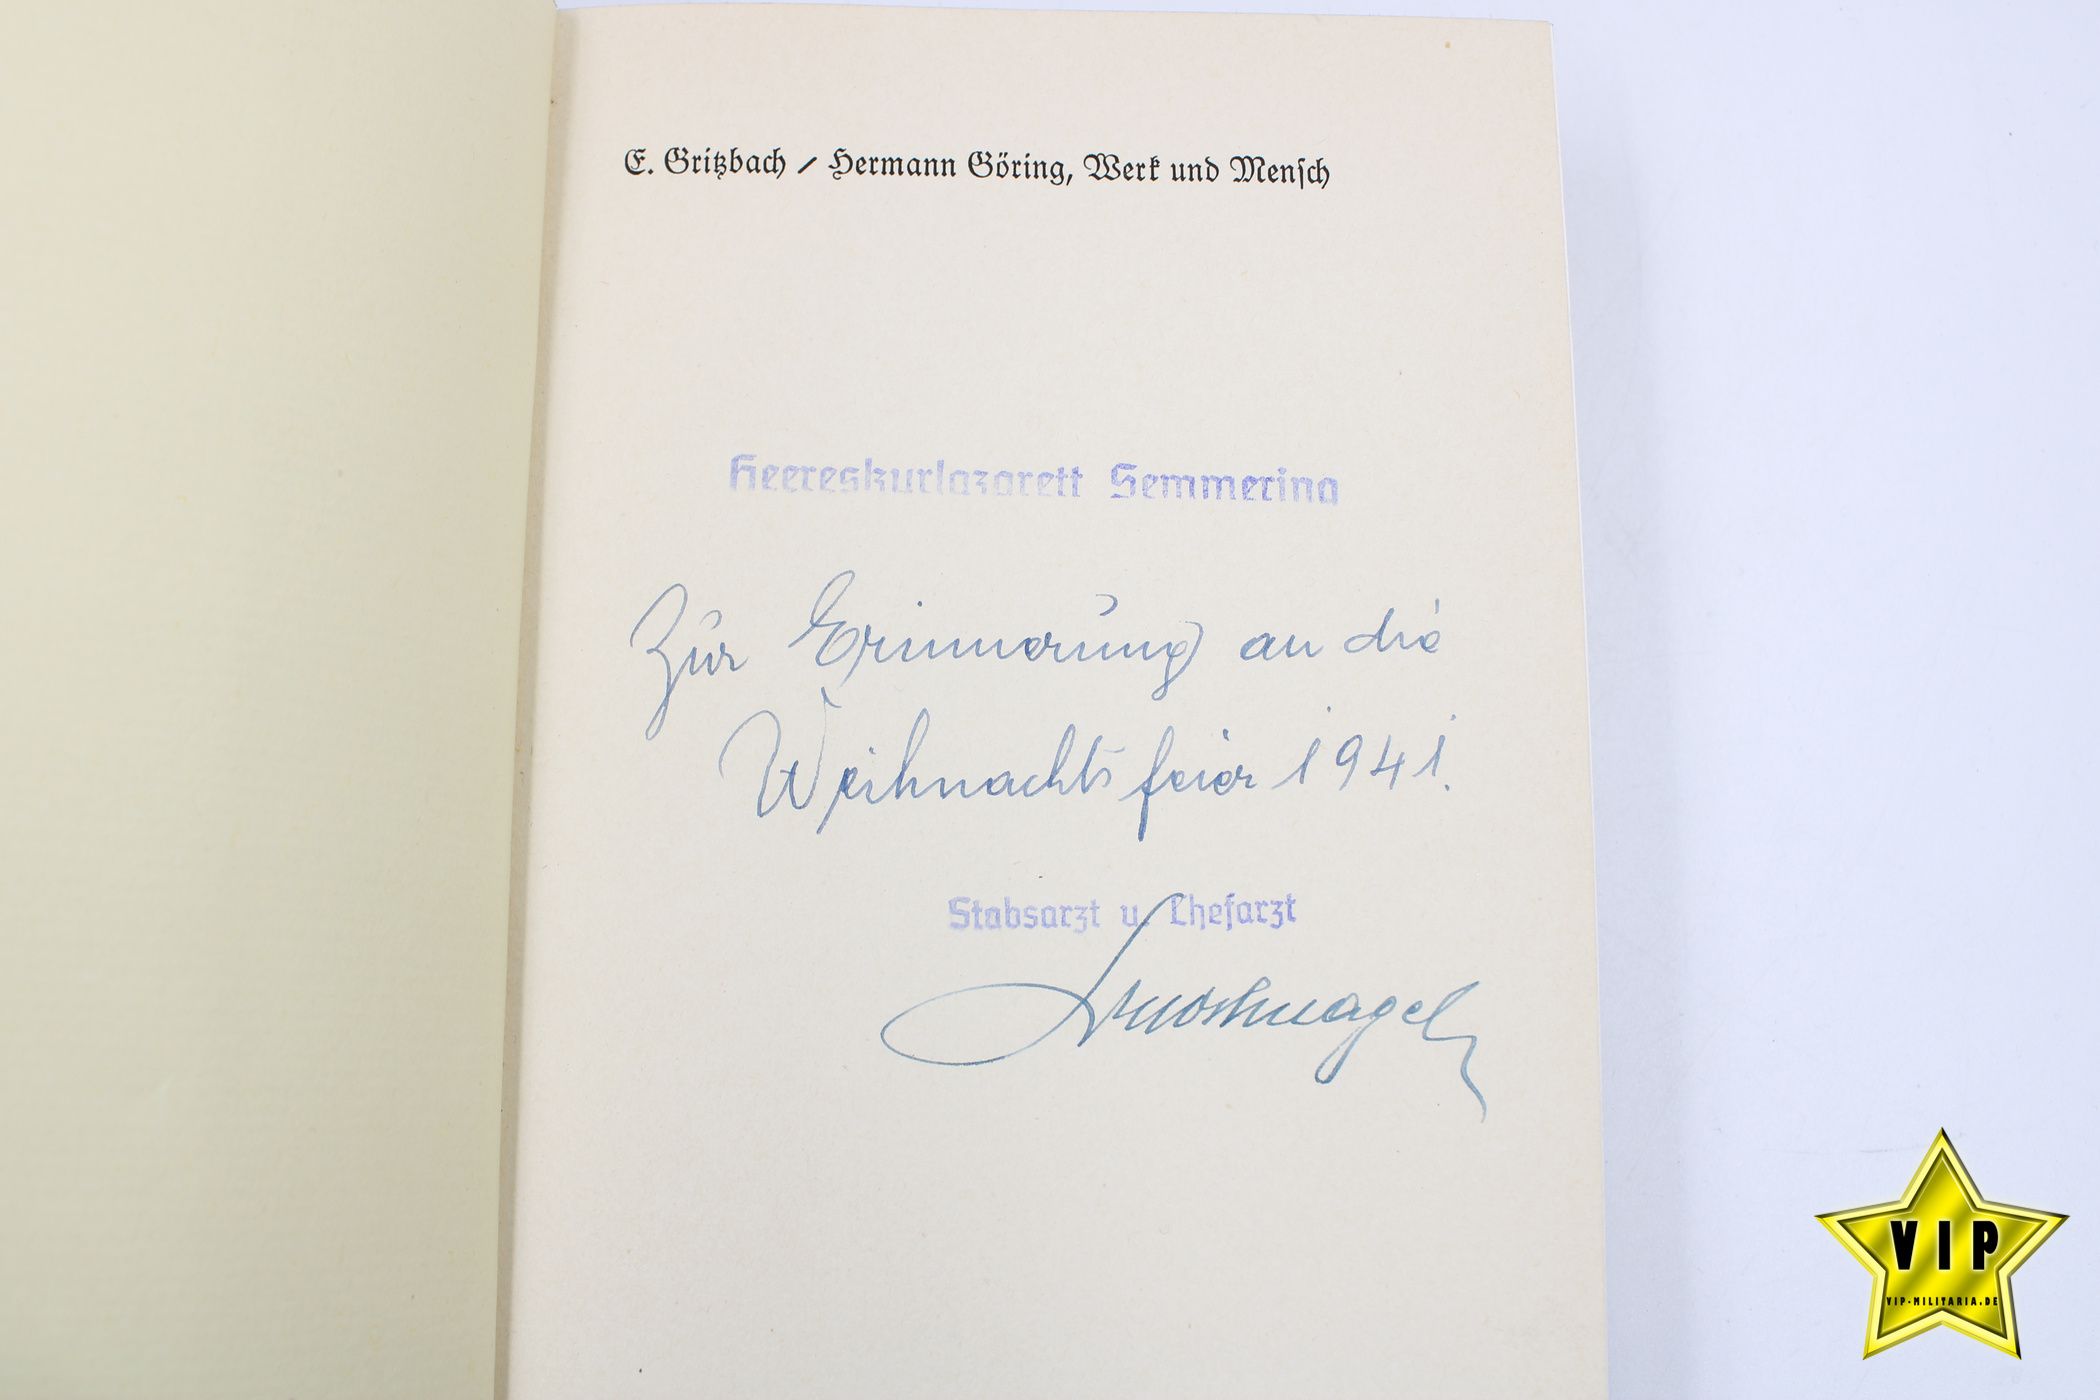 E. Gritzbach / Hermann Göring, Werk und Mensch
Heereskurlazarett Semmering
Zur Erinnerung an die
Weihnachtsfeier 1941.
Stabsarzt u. Chefarzt
VIP
VIP-MILITARIA.DE